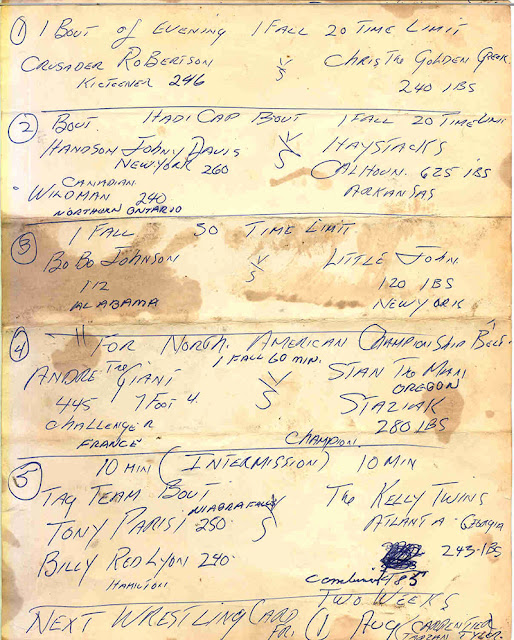 ① 1 BOUT OF EVENING 1 FALL 20 TIME LIMIT
CRUSADER ROBERTSON VS CHRIS THE GOLDEN GREEK
KICTEENER 246 240 LBS
② BOUT. HADICAP BOUT 1 FALL 20 TIME LIMIT
HANDSON JOHNY DAVIS VS HAYSTACKS
NEW YORK 260 CALHOUN. 625 LBS
CANADIAN ARKANSAS
WILDMAN 240
NORTHURN ONTARIO
③ 1 FALL SO TIME LIMIT
BO BO JOHNSON VS LITTLE JOHN.
112 120 LBS
ALABAMA NEW YORK
④ "FOR NORTH. AMERICAN CHAMPIONSHIP BELT"
1 FALL 60 MIN.
ANDRE THE GIANT VS STAN THE MAN
OREGON
445 7 FOOT 4 STAZIAK
CHALLENGER 280 LBS
FRANCE CHAMPION
⑤ 10 MIN (INTERMISSION) 10 MIN
TAG TEAM BOUT THE KELLY TWINS
NIAGRA FALLS VS ATLANTA GEORGIA
TONY PARISI 250
243-LBS
BILLY RED LYON 240
HAMILTON 485
TWO WEEKS
NEXT WRESTLING CARD FRI. (1 AUG CARPENTIER
TARZAN TYLER.